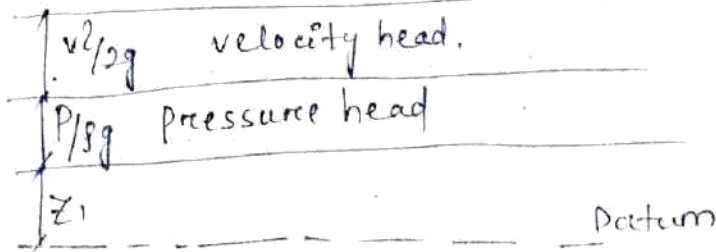 v²/2g velocity head.
P/ρg pressure head
Z₁
Datum